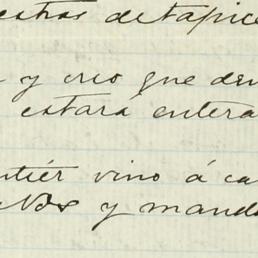 estras de tapice
y creo que den
estará entera
ntiér vino á ca
y manda